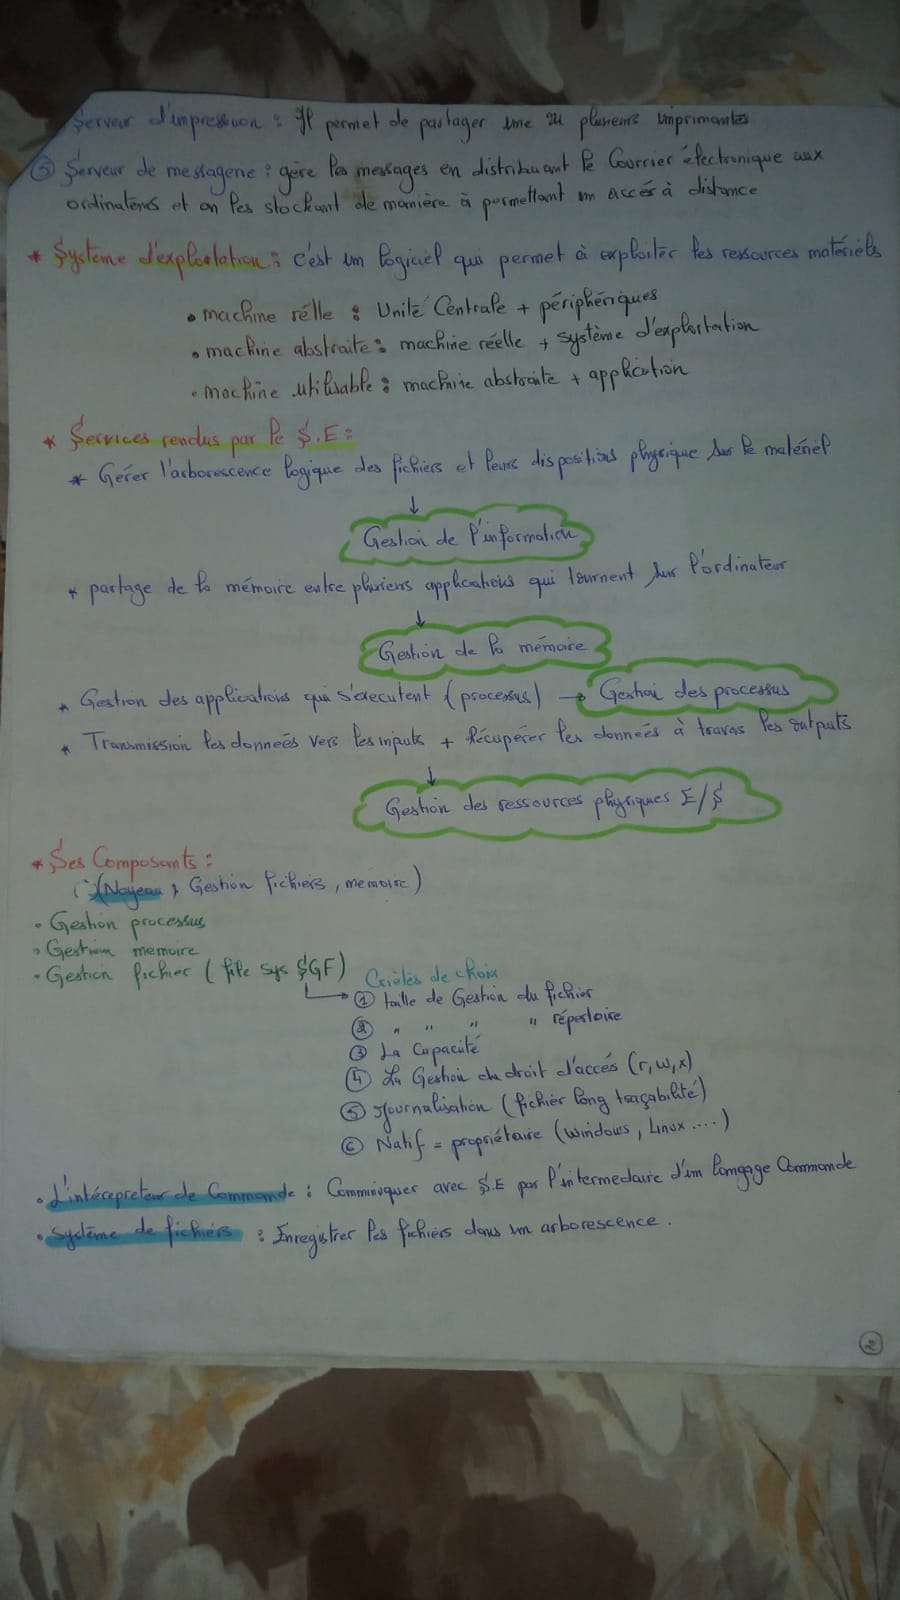 Serveur d'impression : Il permet de partager une ou plusieurs imprimantes
⑤ Serveur de messagerie : gère les messages en distribuant le Courrier électronique aux
ordinateurs et en les stockant de manière à permettant un accés à distance
* Système d'exploitation : c'est un logiciel qui permet à exploiter les ressources matériels
• machine réelle : Unité Centrale + périphériques
• machine abstraite : machine réelle + système d'exploitation
• machine utilisable : machine abstraite + application
* Services rendus par le S.E :
* Gérer l'arborescence logique des fichiers et leurs dispositions physique sur le matériel
↓
Gestion de l'information
* partage de la mémoire entre plusieurs applications qui tournent sur l'ordinateur
↓
Gestion de la mémoire
* Gestion des applications qui s'executent (processus) → Gestion des processus
* Transmission les données vers les inputs + Récupérer les données à travers les outputs
↓
Gestion des ressources physiques E/S
* Ses Composants :
(Noyeau ; Gestion fichiers, memoire)
• Gestion processus
• Gestion memoire
• Gestion fichier (file sys SGF)
Critères de choix
① taille de Gestion du fichier
② " " " " répertoire
③ La Capacité
④ La Gestion du droit d'accés (r,w,x)
⑤ Journalisation (fichier long traçabilité)
⑥ Natif = propriétaire (windows, Linux ....)
• L'intérepreteur de Commande : Comminuquer avec S.E par l'intermedaire d'un langage Commande
• Système de fichiers : Enregistrer les fichiers dans un arborescence.
②